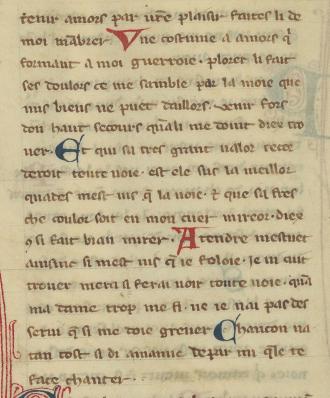 tenir amors par vr̃e plaisir faites li de
moi mãbrer Vne costume a amors q̃
formant a moi guerroie · plorer li fait
ses doulors ce me samble par la moie que
nus biens ne puet daillors · venir fors
dou haut secours quali me doint diex tro
uer · Et qui sa tres grant ualor rece
deroit toute uoie · est ele sus la meillor
quates mest uis q̃ la uoie · ⁊ que sa fres
che coulor soit en mon cuer mireor · diex
9 si fait bian mirer · Atendre mestuet
ausinc si mest uis q̃ ie foloie · je in cuit
trouer merci si ferai uoir toute uoie · quã
ma dame trop me fi · ne ie nai pas des
serui qu si me doie greuer Chancon ua
tan tost a di amanie depar mi q̃le te
face chanter · ·